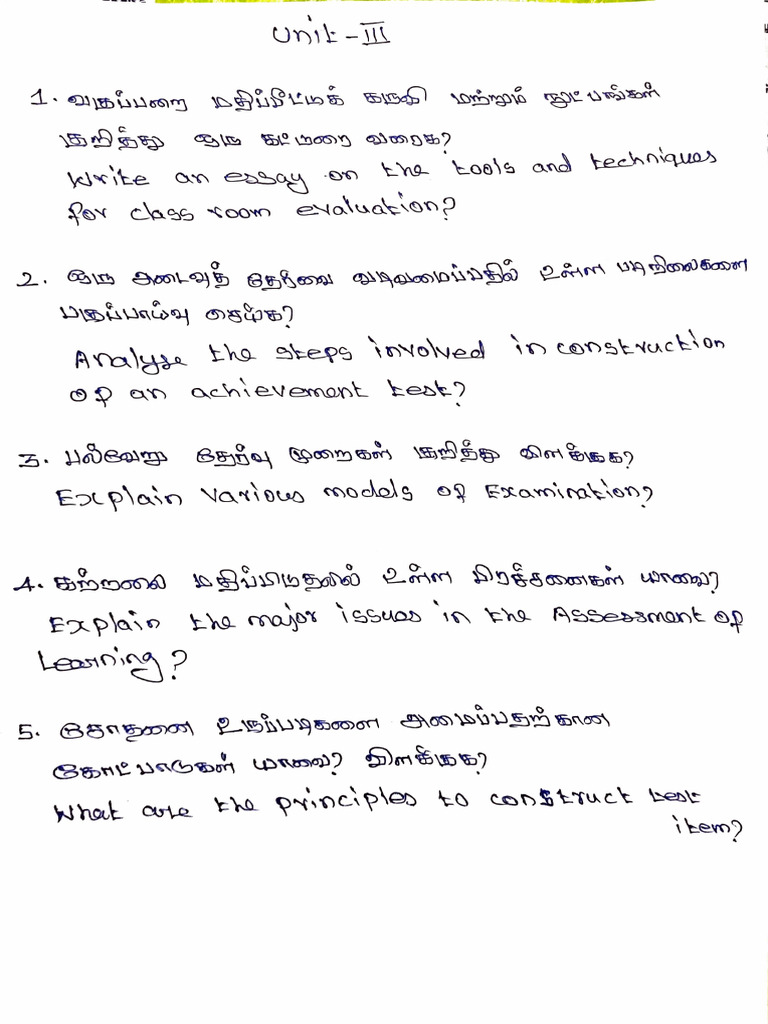 Unit - III
1. வகுப்பறை மதிப்பீட்டுக் கருவி மற்றும் நுட்பங்கள்
குறித்து ஒரு கட்டுரை வரைக?
Write an essay on the tools and techniques
for class room evaluation?
2. ஒரு அடைவுத் தேர்வை வடிவமைப்பதில் உள்ள படிநிலைகளை
பகுப்பாய்வு செய்க?
Analyse the steps involved in construction
of an achievement test?
3. பல்வேறு தேர்வு முறைகள் குறித்து விளக்குக?
Explain various models of Examination?
4. கற்றலை மதிப்பிடுதலில் உள்ள பிரச்சனைகள் யாவை?
Explain the major issues in the Assessment of
Learning?
5. சோதனை உருப்படிகளை அமைப்பதற்கான
கோட்பாடுகள் யாவை? விளக்குக?
What are the principles to construct test
item?